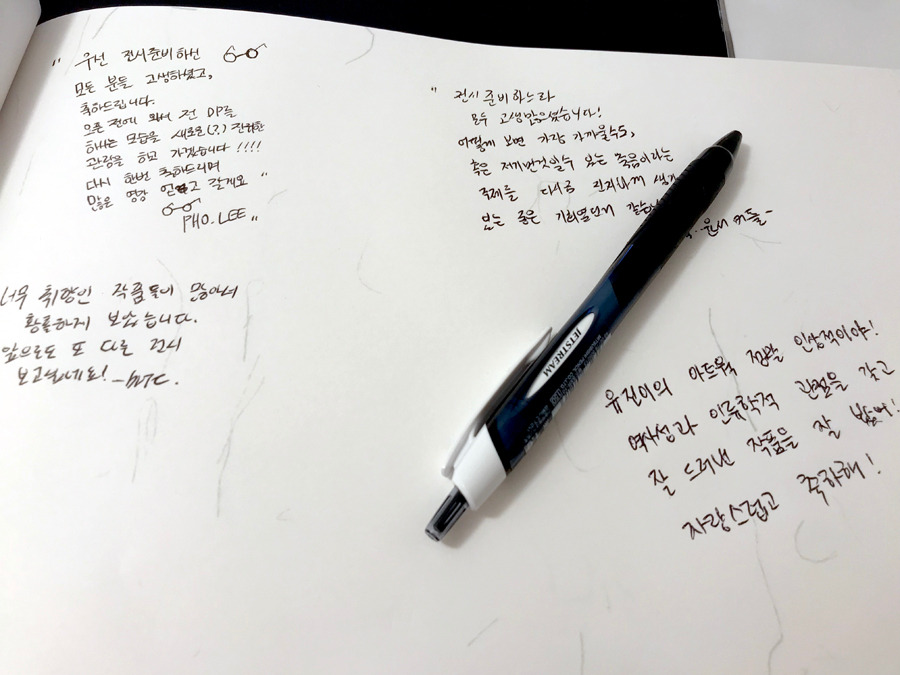 " 우선 전시준비하신
모든 분들 고생하셨고,
축하드립니다.
오픈 전에 와서 전 DP를
하나는 모습을 새로운(?) 진귀한
관람을 하고 가겠습니다!!!!
다시 한번 축하드리며
많은 영감 얻고 갈게요 "
PHO.LEE "
" 전시 준비하느라
모두 고생많으셨습니다!
어떻게 보면 가장 가까울수도,
혹은 저 먼 것일수 있는 죽음이라는
주제를 다시금 진지하게 생각
보는 좋은 기회였던거 같습니
너무 취향인 작품들이 많아서
황홀하게 보았습니다.
앞으로도 또 다른 전시
보고싶네요!
JETSTREAM
유진이의 아트웍 정말 인상적이야!
여사성과 인류학적 관점을 갖고
잘 드러낸 작품을 잘 봤어!
자랑스럽고 축하해!